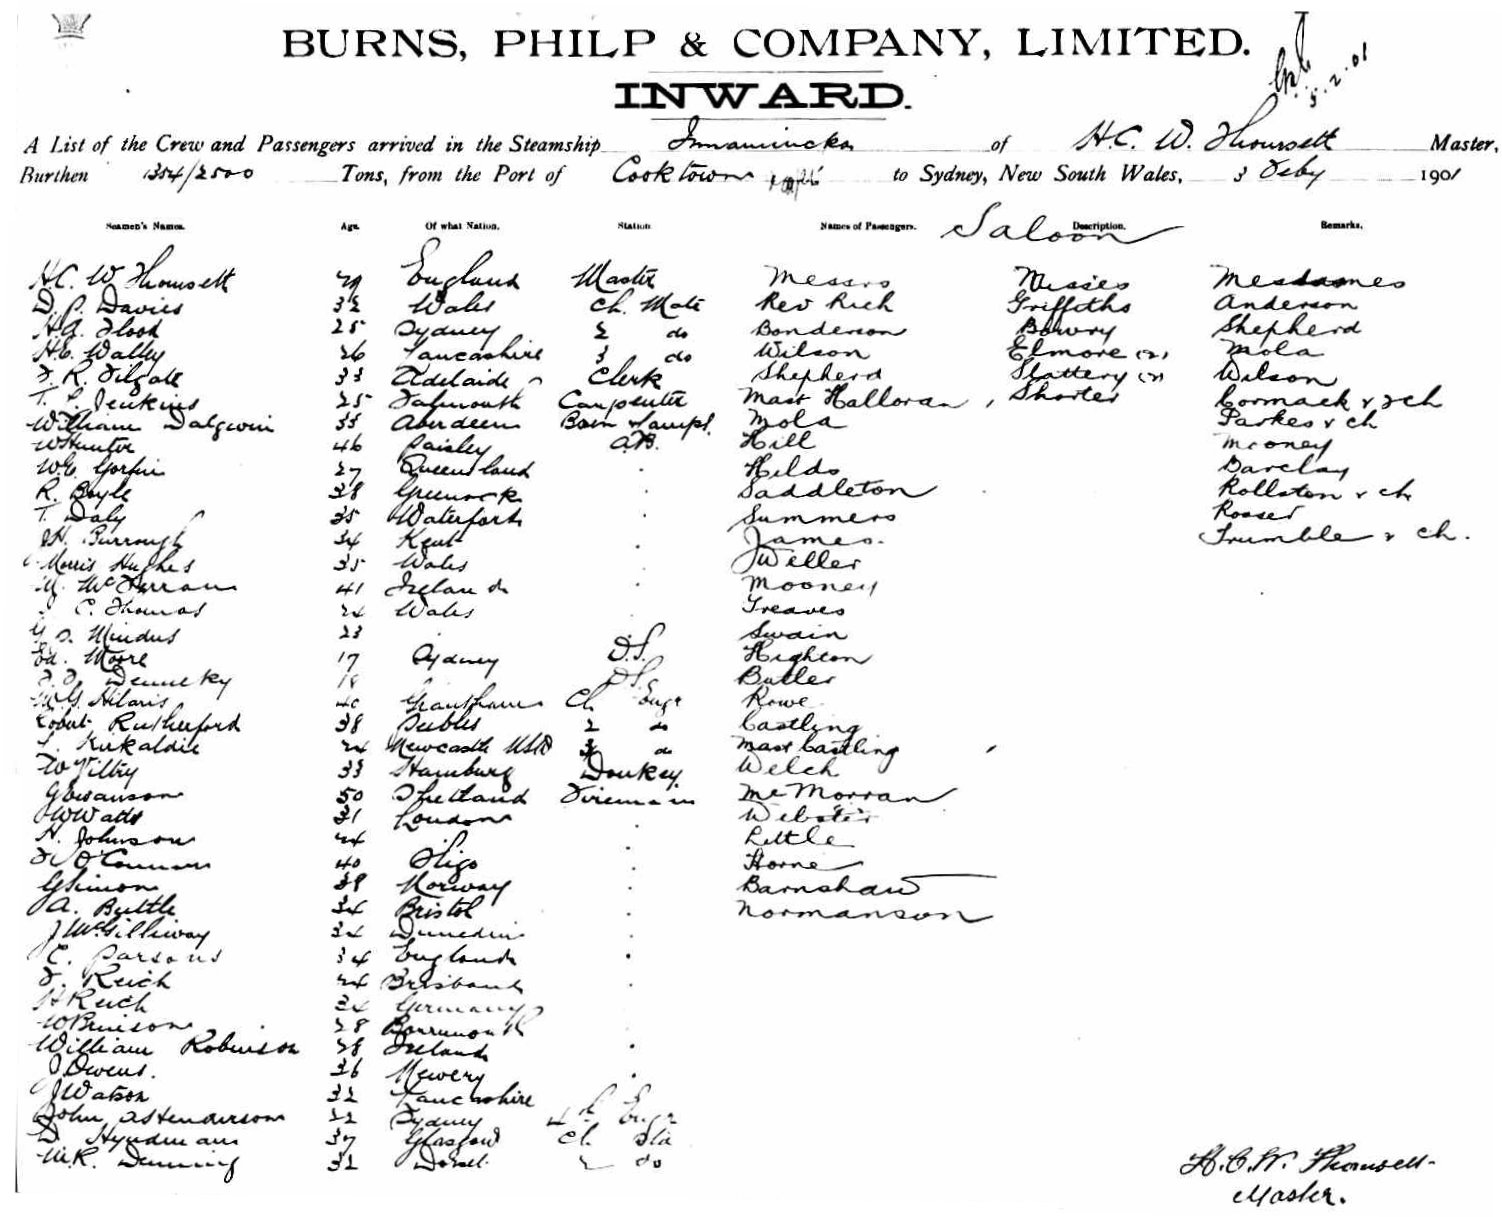 BURNS, PHILP & COMPANY, LIMITED.
5.2.01
INWARD.
A List of the Crew and Passengers arrived in the Steamship Innamincka of H.C. W. Thomsett Master,
Burthen /2500 Tons, from the Port of Cooktown to Sydney, New South Wales, 3 Feby 1901
Seamen's Names. Age. Of what Nation. Station Names of Passengers. Saloon Description. Remarks.
H.C. W Thomsett England Master Messrs Misses Mesdames
D. P. Davies 32 Wales Ch. Mate Rev Rich Griffiths Anderson
H.A. Flood 25 Sydney 2 do Bonderson Bowry Shepherd
H.E. Walley 26 Lancashire 3 do Wilson Elmore (2) Mola
F R. Filgate 33 Adelaide Clerk Shepherd Slattery (2) Wilson
T. L. Jenkins 25 Falmouth Carpenter Mast Halloran Shorter Cormack & 2 ch
William Dalgwin 33 Aberdeen Bosn & Lamps. Mola Parkes & ch
W Hunter 46 Paisley A.B. Hill Mooney
W.E. 27 Queensland . Hilds Barclay
R. Boyle 38 Greenock . Saddleton Rollston & ch
T. Daly 35 Waterford . Summers Rosser
J.H. Burrough 34 Kent . James. Trumble & ch.
Morris Hughes 35 Wales . Weller
M. McFerran 41 Ireland . Mooney
C. Thomas 24 Wales . Greaves
Mindus 23 . Swain
Ed. Moore 17 Sydney D.S. Highton
Dennehy 18 D.S. Butler
Hilaris 40 Grantham Ch. Engr Rowe
Robert Rutherford 38 Peebles 2 do Castling
Kirkaldie 24 Newcastle NSW 3 do Mast Castling
W Filtry 33 Hamburg Donkey. Welch
G Swanson 50 Shetland Fireman McMorran
W Watts 31 London . Webster
H. Johnson 24 . . Little
F O'Connor 40 Sligo . Horne
G Simon 39 Norway . Barnshaw
A. Buttle 34 Bristol . Normanson
J McGilliway 34 Dunedin .
C. Parsons 34 England .
F. Reich 24 Brisbane .
H Reich 34 Germany .
W 28 .
William Robinson 28 Ireland .
J Owens. 36 Newery .
J Watson 32 Lancashire
John Henderson 22 Sydney 4th Engr
D. Hyndman 37 Glasgow Ch. Std
W.R. Denning 32 Dorset 2 do
H.C.W. Thomsett
Master.